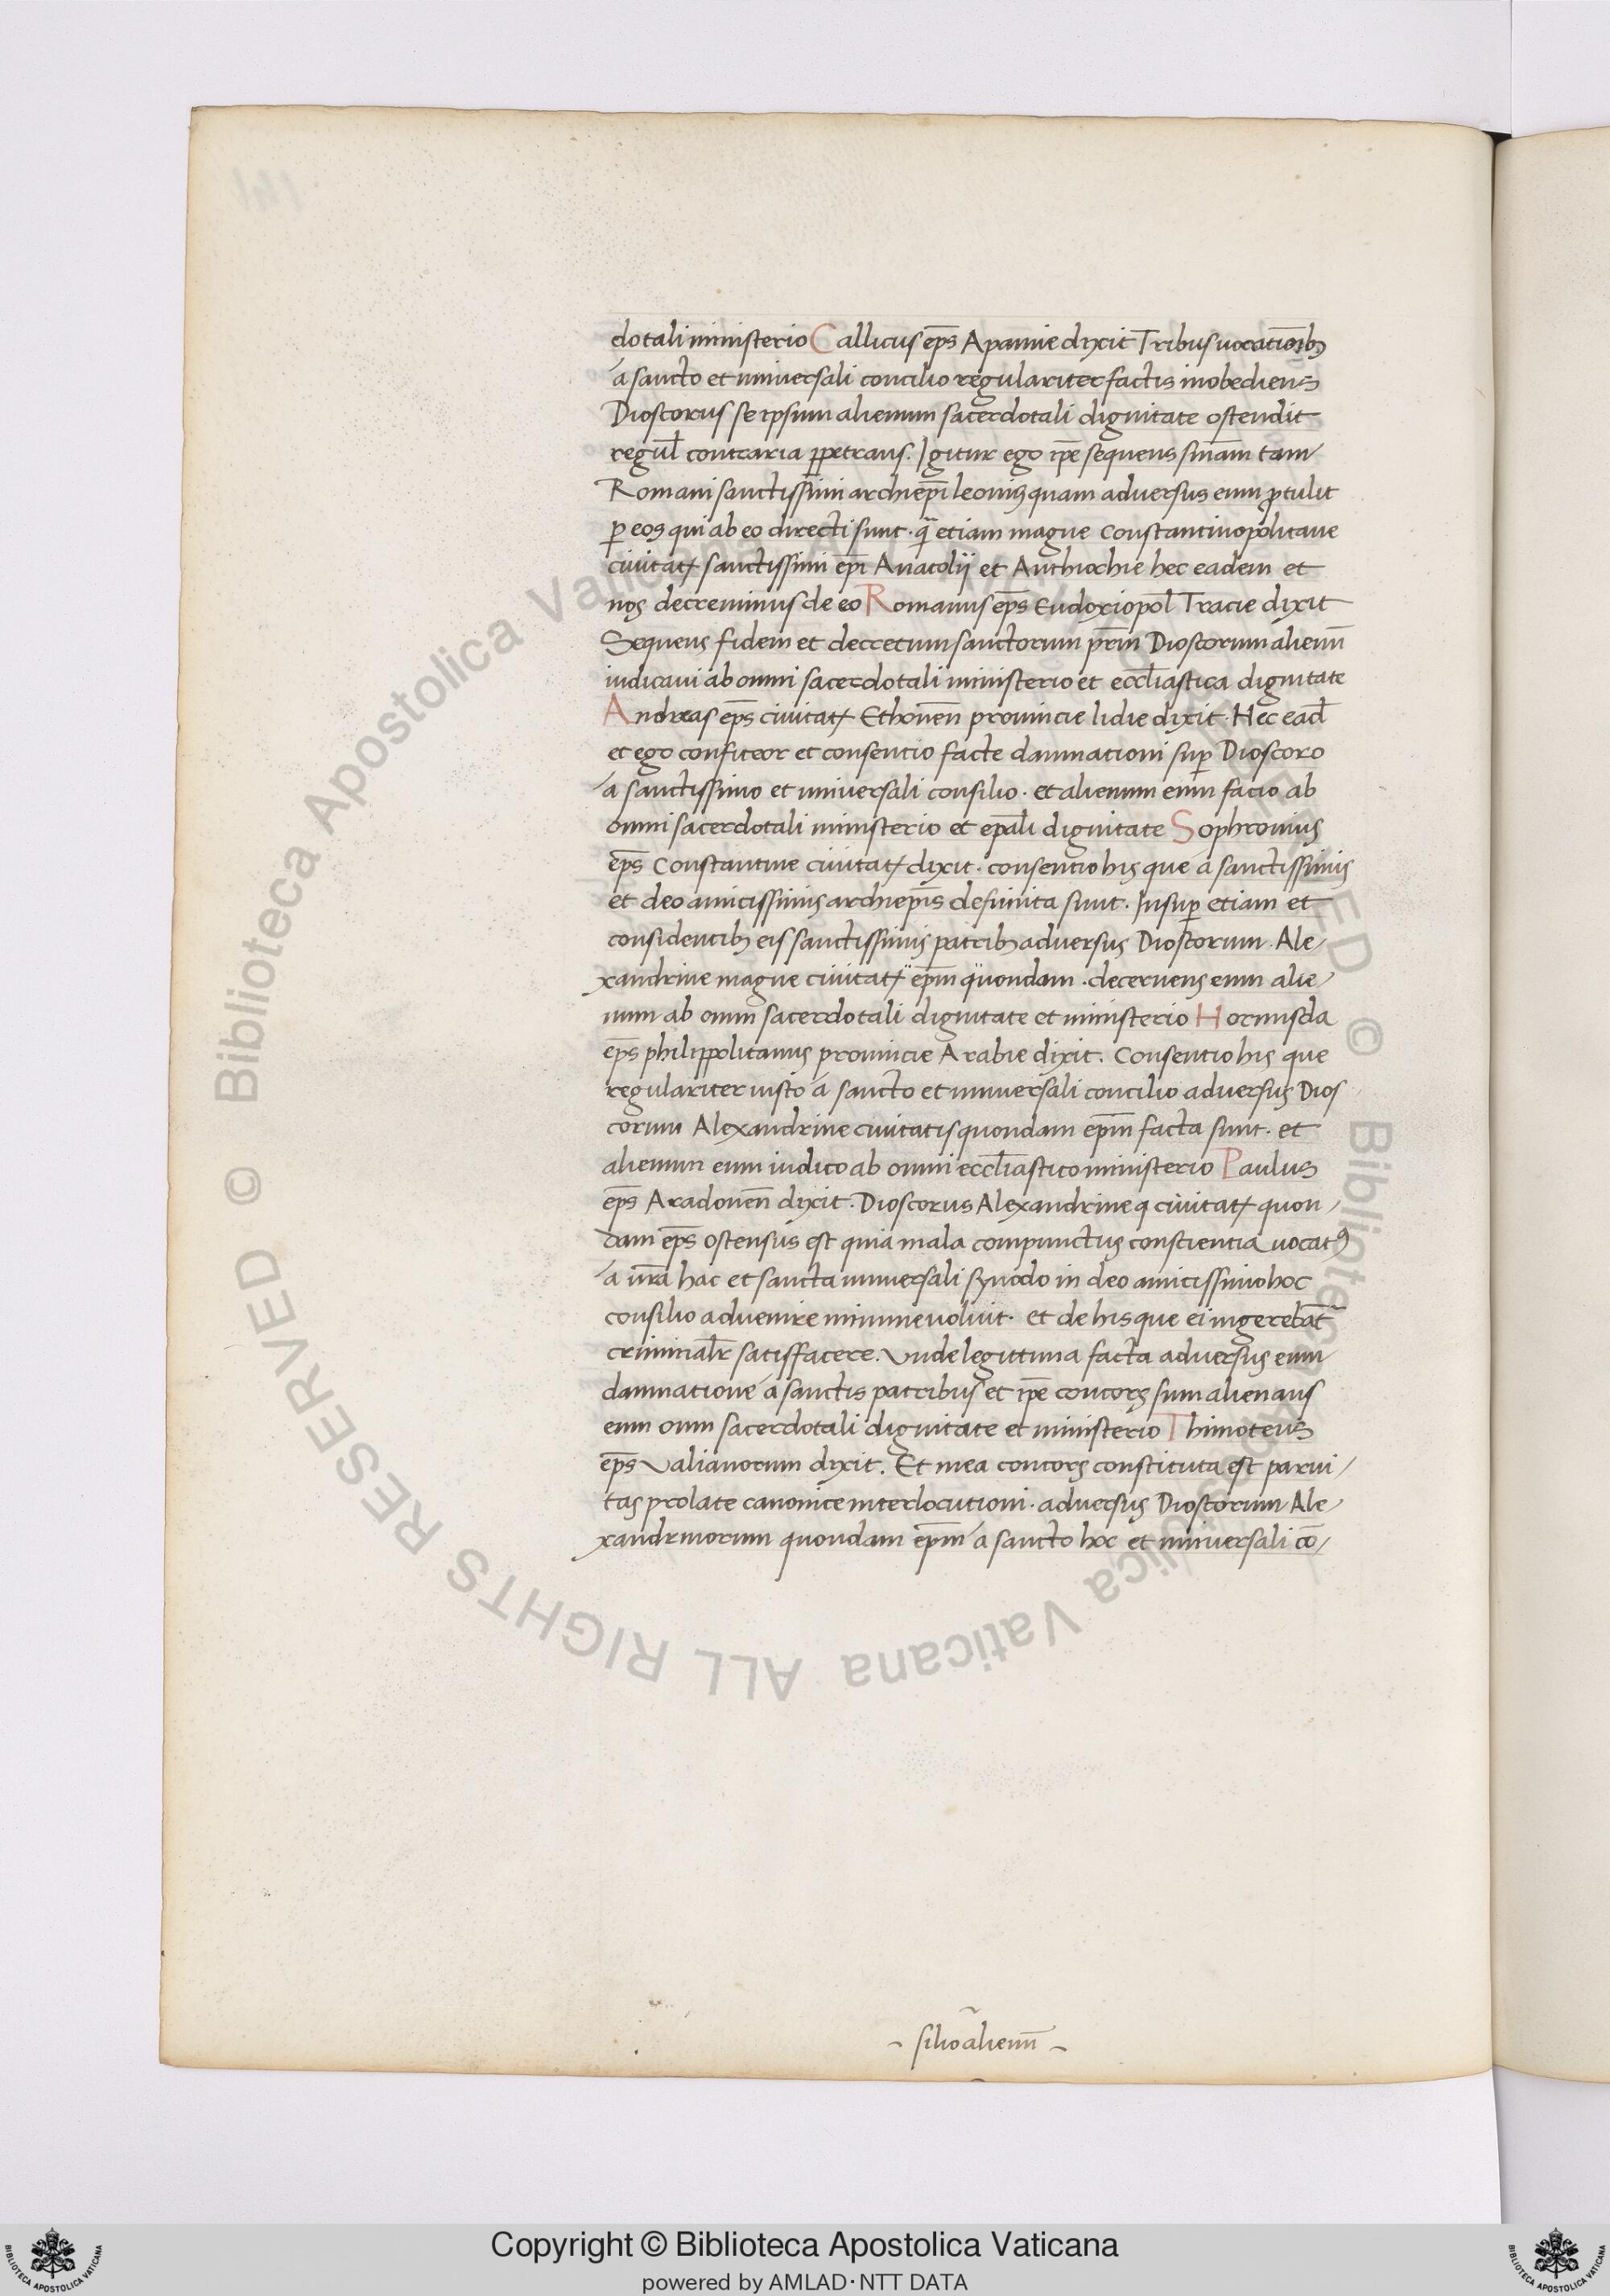 dotali ministerio Callicus ep̄s Apamie dixit Tribus uocatiōnibꝫ
a sancto et uniuersali concilio regulariter factis inobediens
Dioscorus se ipsum alienum sacerdotali dignitate ostendit
regul̄ contraria ꝑpetrans. Igitur ego ip̄e sequens sn̄iam tam
Romani sanctissimi archiep̄i leonis quam aduersus eum ꝓtulit
ꝑ eos qui ab eo directi sunt. q̄ etiam magne constantinopolitane
ciuitatꝭ sanctissimi ep̄i Anatolij et Anthiochie hec eadem et
nos decreuimus de eo Romanus ep̄s Eudoxiopol̄ Tracie dixit
Sequens fidem et decretum sanctorum pr̄m Dioscorum alienū
iudicaui ab omni sacerdotali ministerio et eccl̄iastica dignitate
Andreas ep̄s ciuitatꝭ Ethonen̄ prouincie lidie dixit. Hec ead̄
et ego confiteor et consentio facte damnationi suꝑ Dioscoro
a sanctissimo et uniuersali consilio. et alienum eum facio ab
omni sacerdotali ministerio et ep̄ali dignitate Sophronius
ep̄s Constantine ciuitatꝭ dixit. consentio his que a sanctissimis
et deo amicissimis archiep̄is definita sunt. Insuꝑ etiam et
considentibꝫ eis sanctissimis patribꝫ aduersus Dioscorum. Ale/
xandrine magne ciuitatꝭ ep̄m quondam. decernens eum alie/
num ab omni sacerdotali dignitate et ministerio Hormisda
ep̄s philippolitanus prouincie Arabie dixit. Consentio his que
regulariter iusto a sancto et uniuersali concilio aduersus Dios
corum Alexandrine ciuitatis quondam ep̄m facta sunt. et
alienum eum iudico ab omni eccl̄iastico ministerio Paulus
ep̄s Aradonen̄ dixit. Dioscorus Alexandrine q ciuitatꝭ quon/
dam ep̄s ostensus est quia mala compunctus conscientia uocatꝰ
a ur̄a hac et sancta uniuersali synodo in deo amicissimo hoc
consilio aduenire minime uoluit. et de his que ei ingerebāt
criminal̄r satisfacere. Unde legittima facta aduersus eum
damnatione a sanctis patribus et ip̄e concors sum alienans
eum omni sacerdotali dignitate et ministerio Thimoteus
ep̄s Valianorum dixit. Et mea concors constituta est parui/
tas prolate canonice interlocutioni. aduersus Dioscorum Ale/
xandrinorum quondam ep̄m a sancto hoc et uniuersali cō/
silio alienū
© Biblioteca Apostolica Vaticana ALL RIGHTS RESERVED © Biblioteca Apostolica Vaticana ALL RIGHTS RESERVED
Copyright © Biblioteca Apostolica Vaticana
powered by AMLAD·NTT DATA
BIBLIOTECA APOSTOLICA VATICANA
BIBLIOTECA APOSTOLICA VATICANA